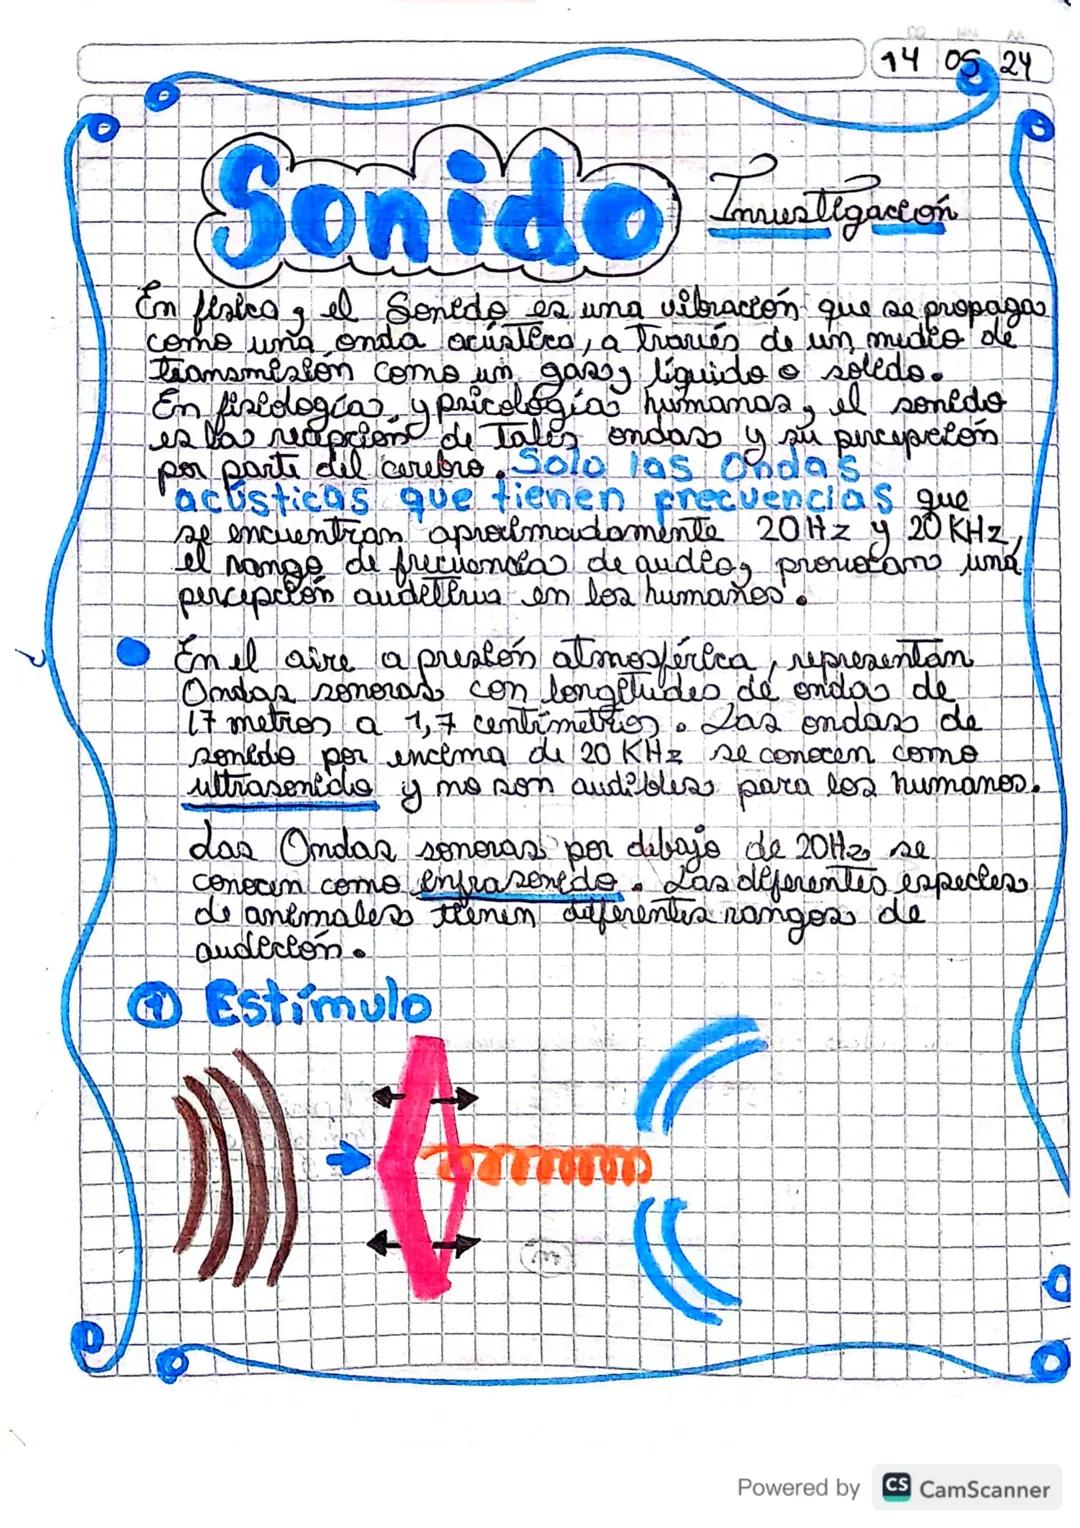 DD MM AA
14 05 24
Sonido Investigación
En física, el Sonido es una vibración que se propaga
como una onda acústica, a través de un medio de
transmisión como un gas, líquido o sólido.
En fisiología y psicología humanas, el sonido
es la recepción de Tales ondas y su percepción
por parte del cerebro. Solo las Ondas
acústicas que tienen frecuencias que
se encuentran aproximadamente 20 Hz y 20 KHz,
el rango de frecuencia de audio, provocan una
percepción auditiva en los humanos.
En el aire a presión atmosférica, representan
Ondas sonoras con longitudes de onda de
17 metros a 1,7 centímetros. Las ondas de
sonido por encima de 20 KHz se conocen como
ultrasonido y no son audibles para los humanos.
Las Ondas sonoras por debajo de 20Hz se
conocen como infrasonido. Las diferentes especies
de animales tienen diferentes rangos de
audición.
1 Estímulo
Powered by CS CamScanner